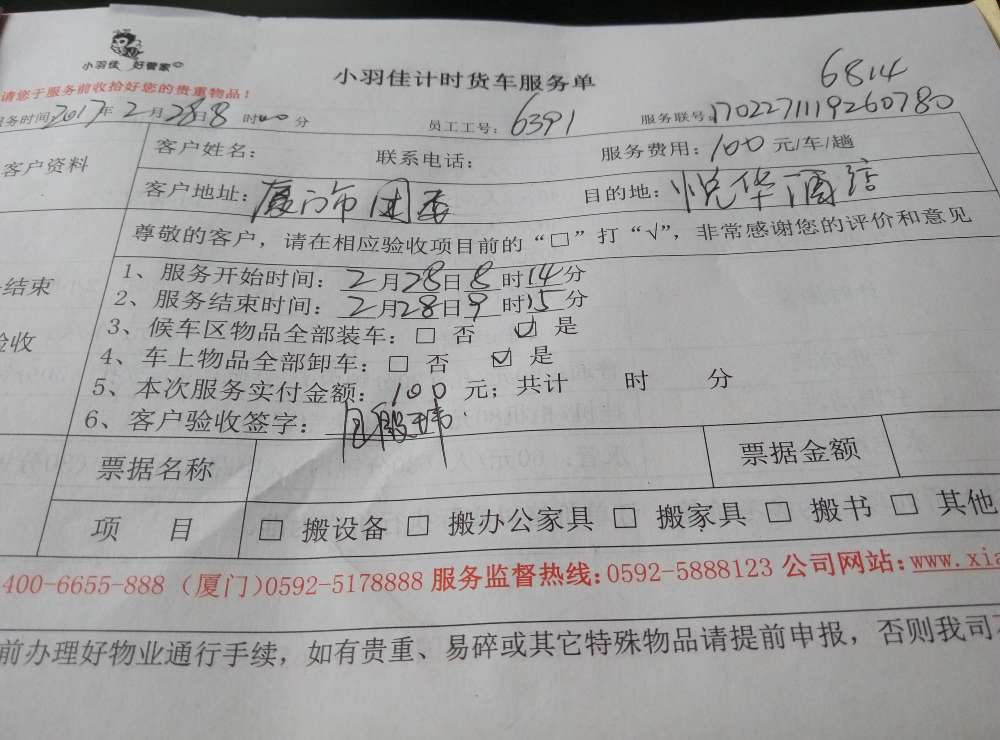 小羽佳 好管家
小羽佳计时货车服务单
6814
请您于服务前收拾好您的贵重物品！
服务时间2017年2月28日8时00分 员工工号：6391 服务联号：1702271119260780
客户资料
客户姓名： 联系电话： 服务费用：100元/车/趟
客户地址：厦门市团委 目的地：悦华酒店
尊敬的客户，请在相应验收项目前的“□”打“√”，非常感谢您的评价和意见
结束
验收
1、服务开始时间：2月28日8时14分
2、服务结束时间：2月28日9时15分
3、候车区物品全部装车：□ 否 ☑ 是
4、车上物品全部卸车：□ 否 ☑ 是
5、本次服务实付金额：100元；共计 时 分
6、客户验收签字：
票据名称 票据金额
项 目 □ 搬设备 □ 搬办公家具 □ 搬家具 □ 搬书 □ 其他
400-6655-888（厦门）0592-5178888 服务监督热线：0592-5888123 公司网站：www.xia
前办理好物业通行手续，如有贵重、易碎或其它特殊物品请提前申报，否则我司